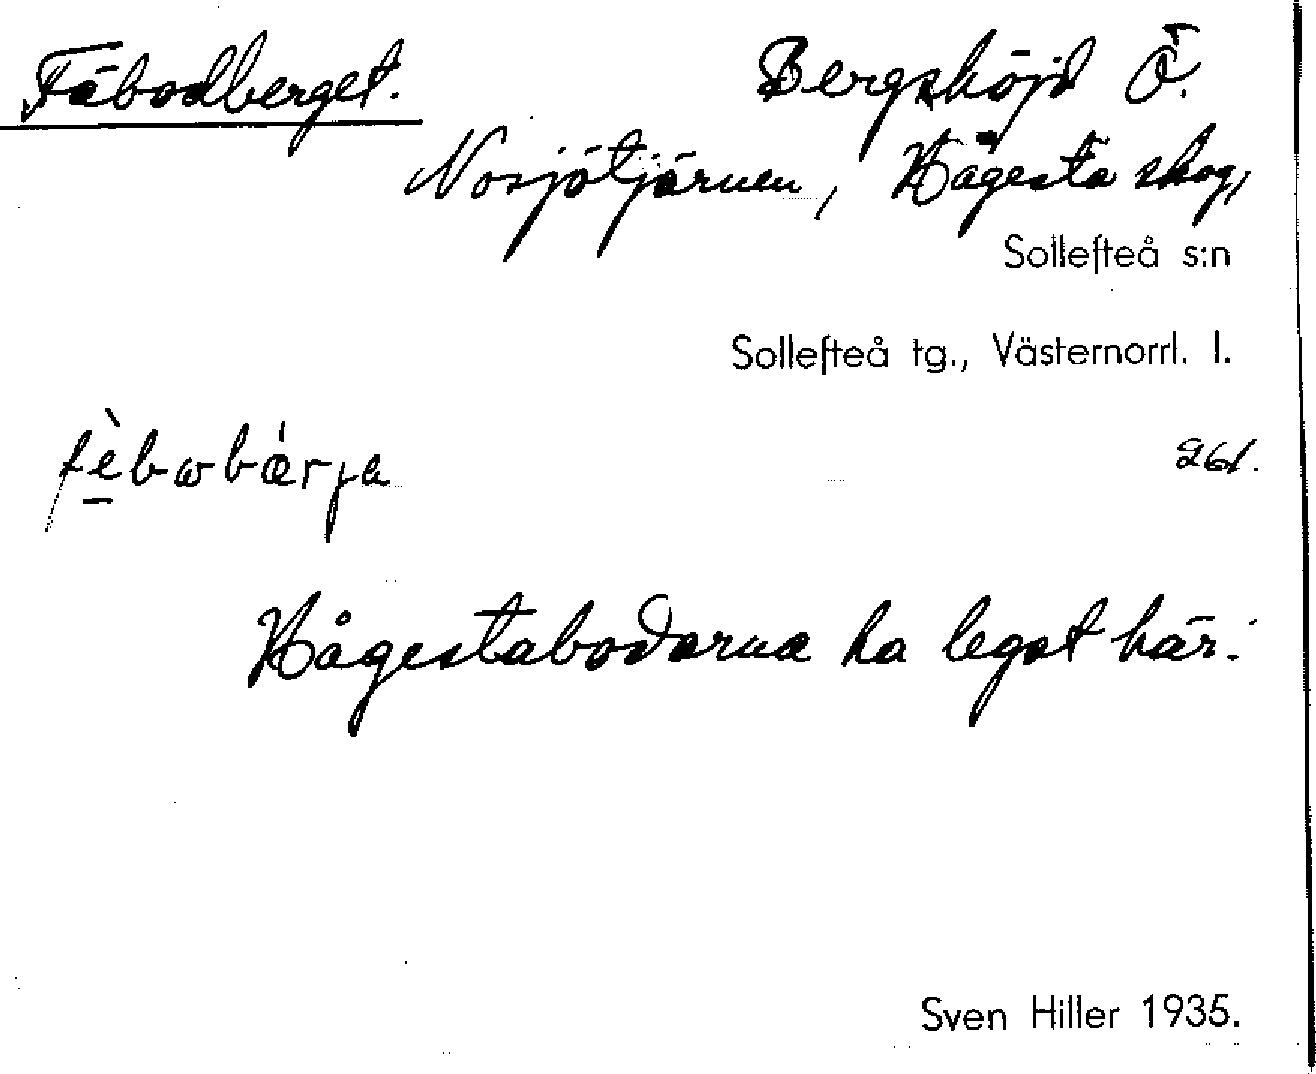 Fäbodberget. Bergshöjd Ö.
Nosjötjärnen, Hågesta skog,
Sollefteå s:n
Sollefteå tg., Västernorrl. l.
fè̱bωbærja 261.
Hågestabodarna ha legat här.
Sven Hiller 1935.